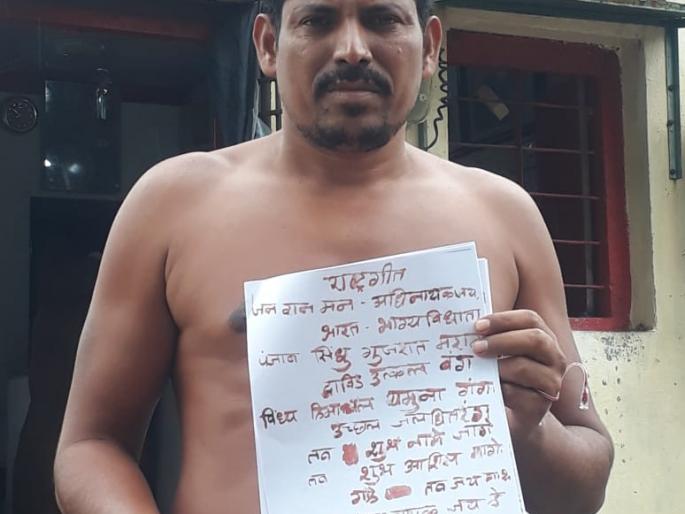 राष्ट्रगीत
जन गन मन - अधिनायक जय,
भारत - भाग्य विधाता
पंजाब सिंधु गुजरात मराठा
द्राविड उत्कल वंग
विंध्य हिमाचल यमुना गंगा
उच्छल जलधितरंग
तव शुभ नामे जागे
तव शुभ आशिस मागे
गाहे तव जय गाथा
जय हे